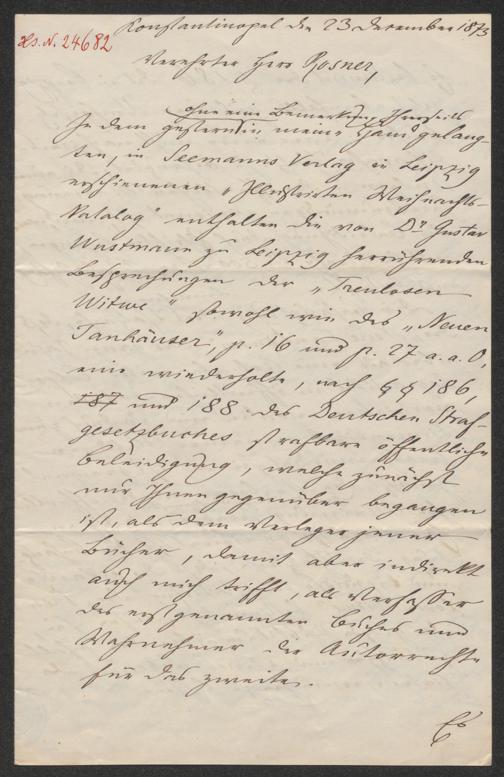 Hs. N. 24682
Konstantinopel den 23 Dezember 1873
Verehrter Herr Rosner,
ohne eine Bemerkung Ihrerseits
In dem gestern in meine Hand gelang-
ten, in Seemanns Verlag in Leipzig
erschienenen „Illustrirten Weihnachts-
Katalog" enthalten die von Dr Gustav
Wustmann zu Leipzig herrührenden
Besprechungen der „Treulosen
Witwe" sowohl wie des „Neuen
Tanhäuser", p. 16 und p. 27 a. a. O,
eine wiederholte, nach §§ 186,
187 und 188 des Deutschen Straf-
gesetzbuches strafbare öffentliche
Beleidigung, welche zunächst
nur Ihnen gegenüber begangen
ist, als dem Verleger jener
Bücher, damit aber indirekt
auch mich trifft, als Verfasser
des erstgenannten Buches und
Wahrnehmer der Autorrechte
für das zweite.
Es